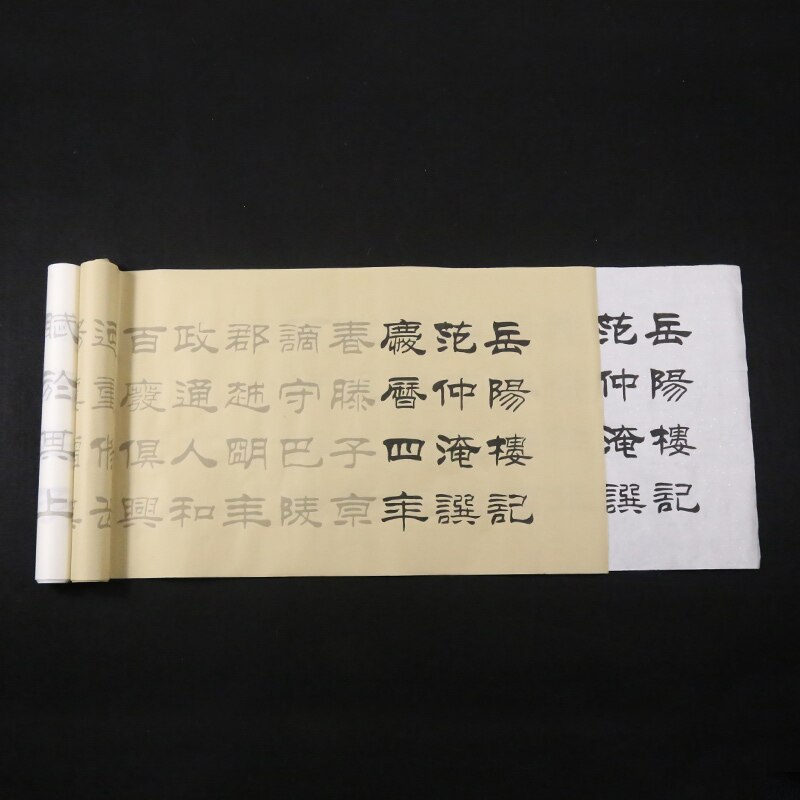 岳陽樓記
范仲淹譔
慶曆四年
春滕子京
謫守巴陵
郡越朙年
政通人和
百廢俱興
岳陽樓記
范仲淹譔